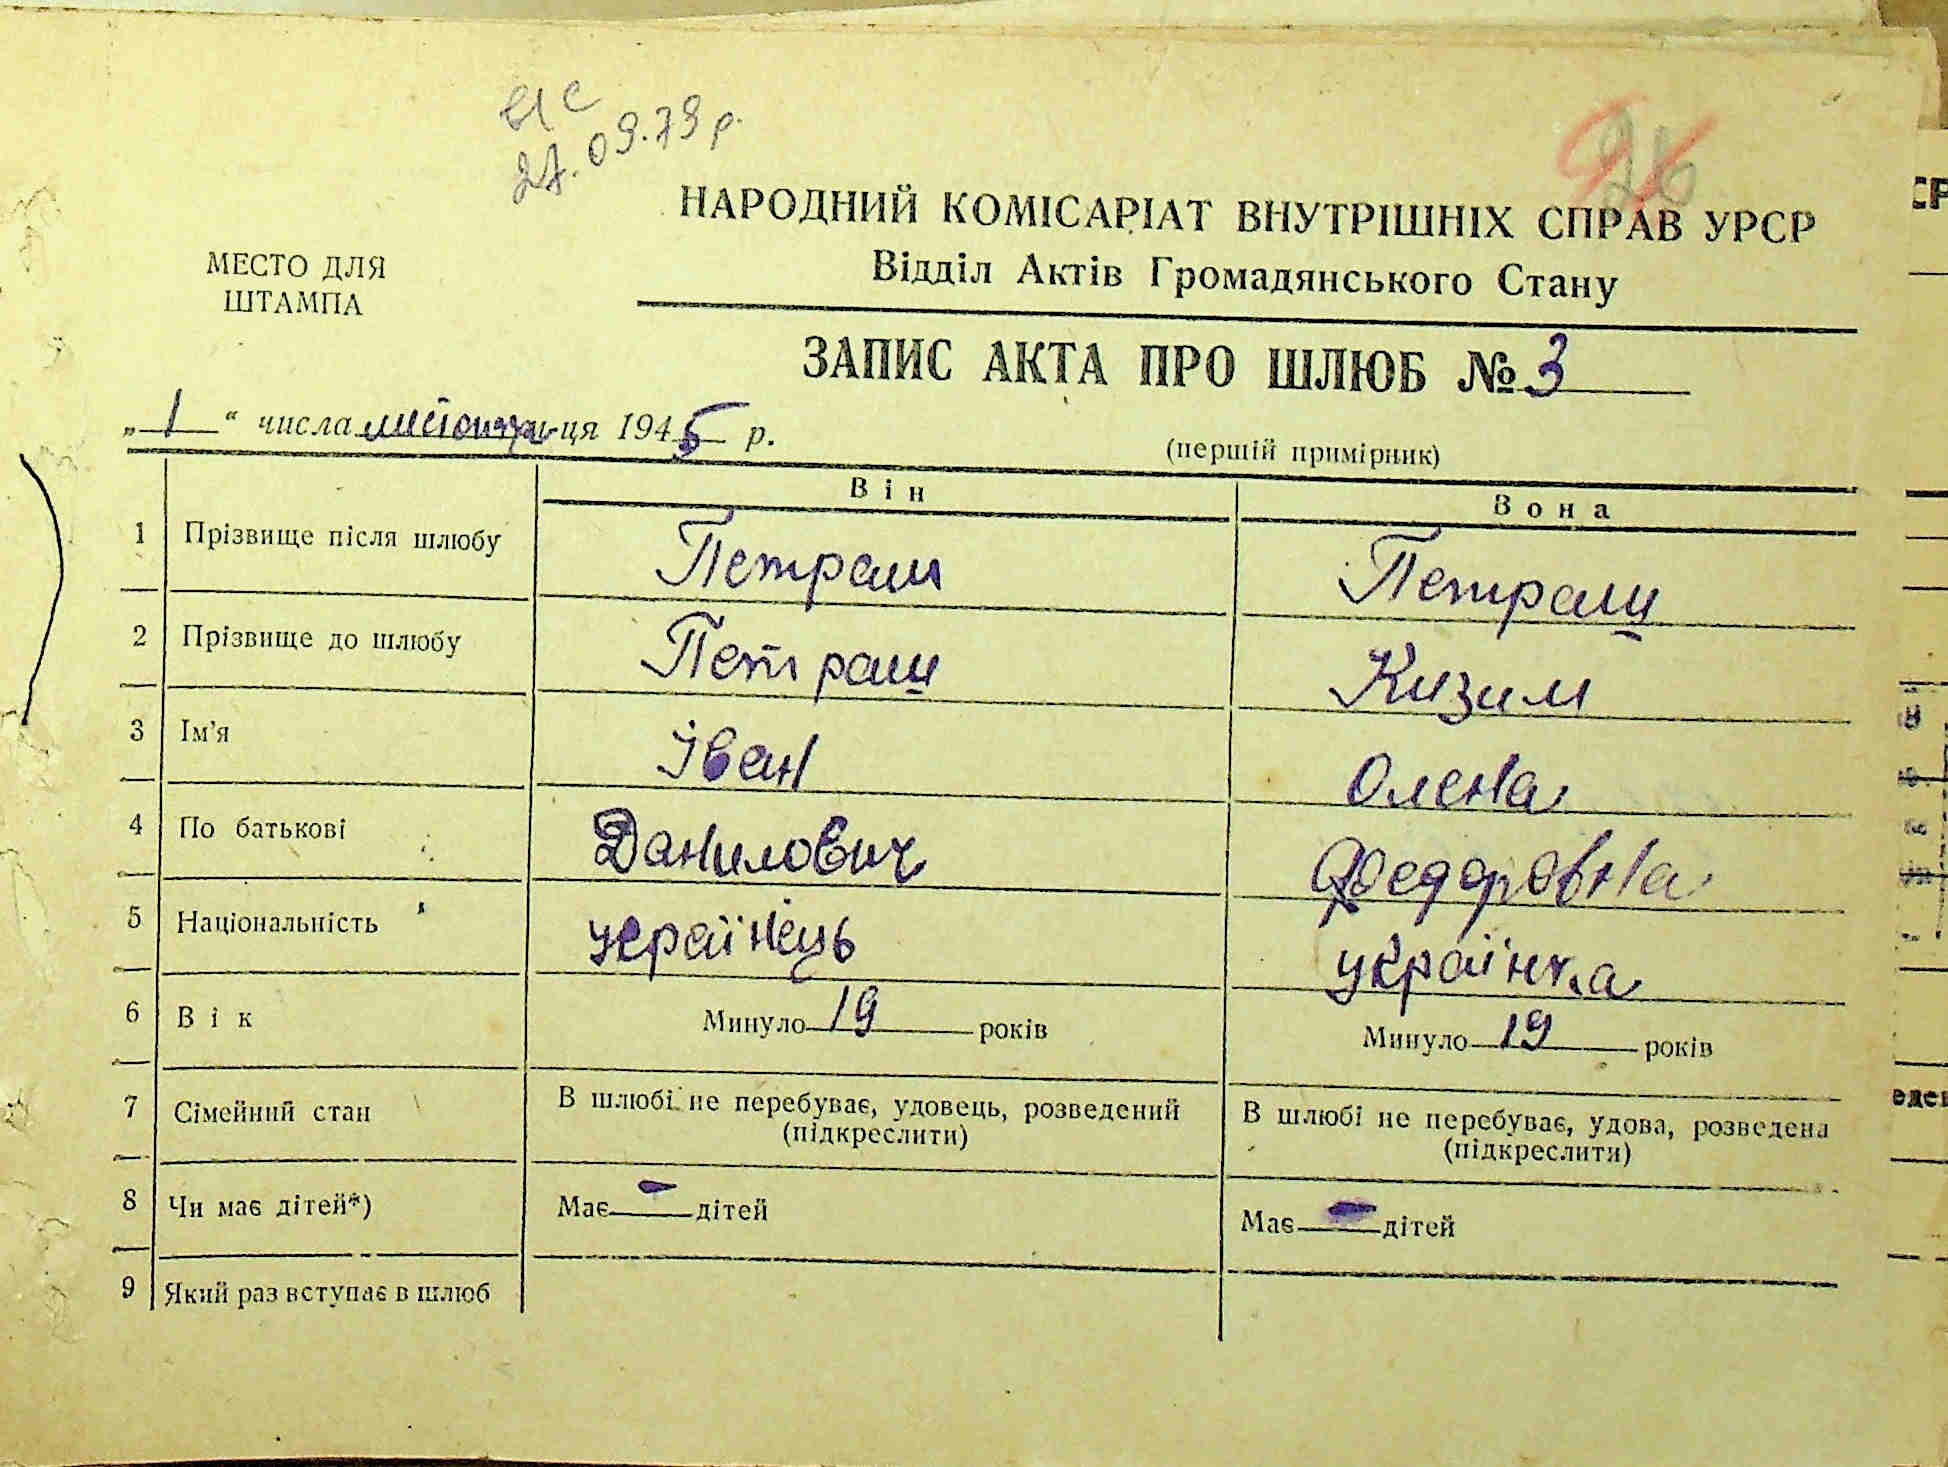 27.09.79 р.
НАРОДНИЙ КОМІСАРІАТ ВНУТРІШНІХ СПРАВ УРСР
Відділ Актів Громадянського Стану
МЕСТО ДЛЯ
ШТАМПА
ЗАПИС АКТА ПРО ШЛЮБ № 3
„ 1 “ числа листопада ця 1945 р.
(першій примірник)
Він Вона
1 Прізвище після шлюбу Петраш Петраш
2 Прізвище до шлюбу Петраш Кизим
3 Ім'я Іван Олена
4 По батькові Данилович Федоровна
5 Національність українець українка
6 Вік Минуло 19 років Минуло 19 років
7 Сімейний стан В шлюбі не перебуває, удовець, розведений (підкреслити) В шлюбі не перебуває, удова, розведена (підкреслити)
8 Чи має дітей*) Має — дітей Має — дітей
9 Який раз вступає в шлюб